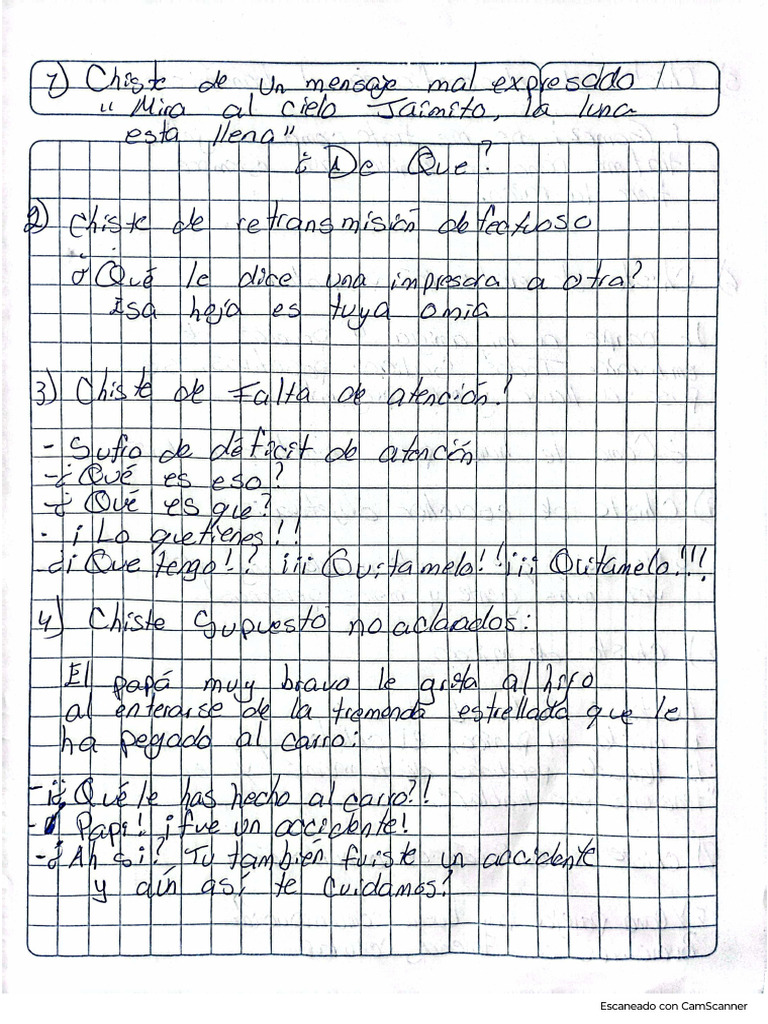 1) Chiste de un mensaje mal expresado /
"Mira al cielo Jaimito, la luna
esta llena"
¿De Que?
2) Chiste de retransmisión defectuoso
¿Qué le dice una impresora a otra?
Esa hoja es tuya o mia
3) Chiste de Falta de atención!
- Sufro de déficit de atención
- ¿Qué es eso?
- ¿Qué es que?
- ¡Lo que tienes!!
- ¿¡Que tengo!? ¡¡¡Quitamelo!! ¡¡¡Quitamelo!!!
4) Chiste Supuesto no aclarados:
El papá muy bravo le grita al hijo
al enterarse de la tremenda estrellada que le
ha pegado al carro:
- ¡¿Qué le has hecho al carro?!
- Papi! ¡fue un accidente!
- ¿Ah si? Tu también fuiste un accidente
y aún así te cuidamos?
Escaneado con CamScanner